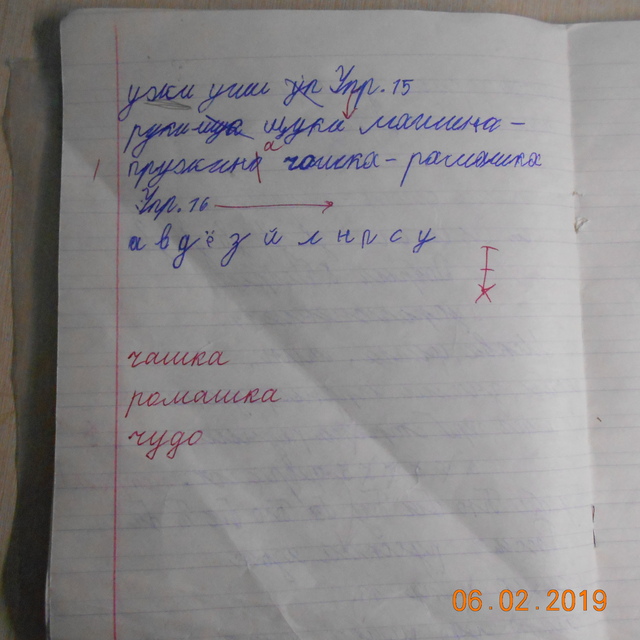 ужи уши ур Упр. 15
руки щука машина-
пружина чашка-рамашка
Упр. 16
а в д ё з й л н р с у
чашка
ромашка
чудо
06.02.2019